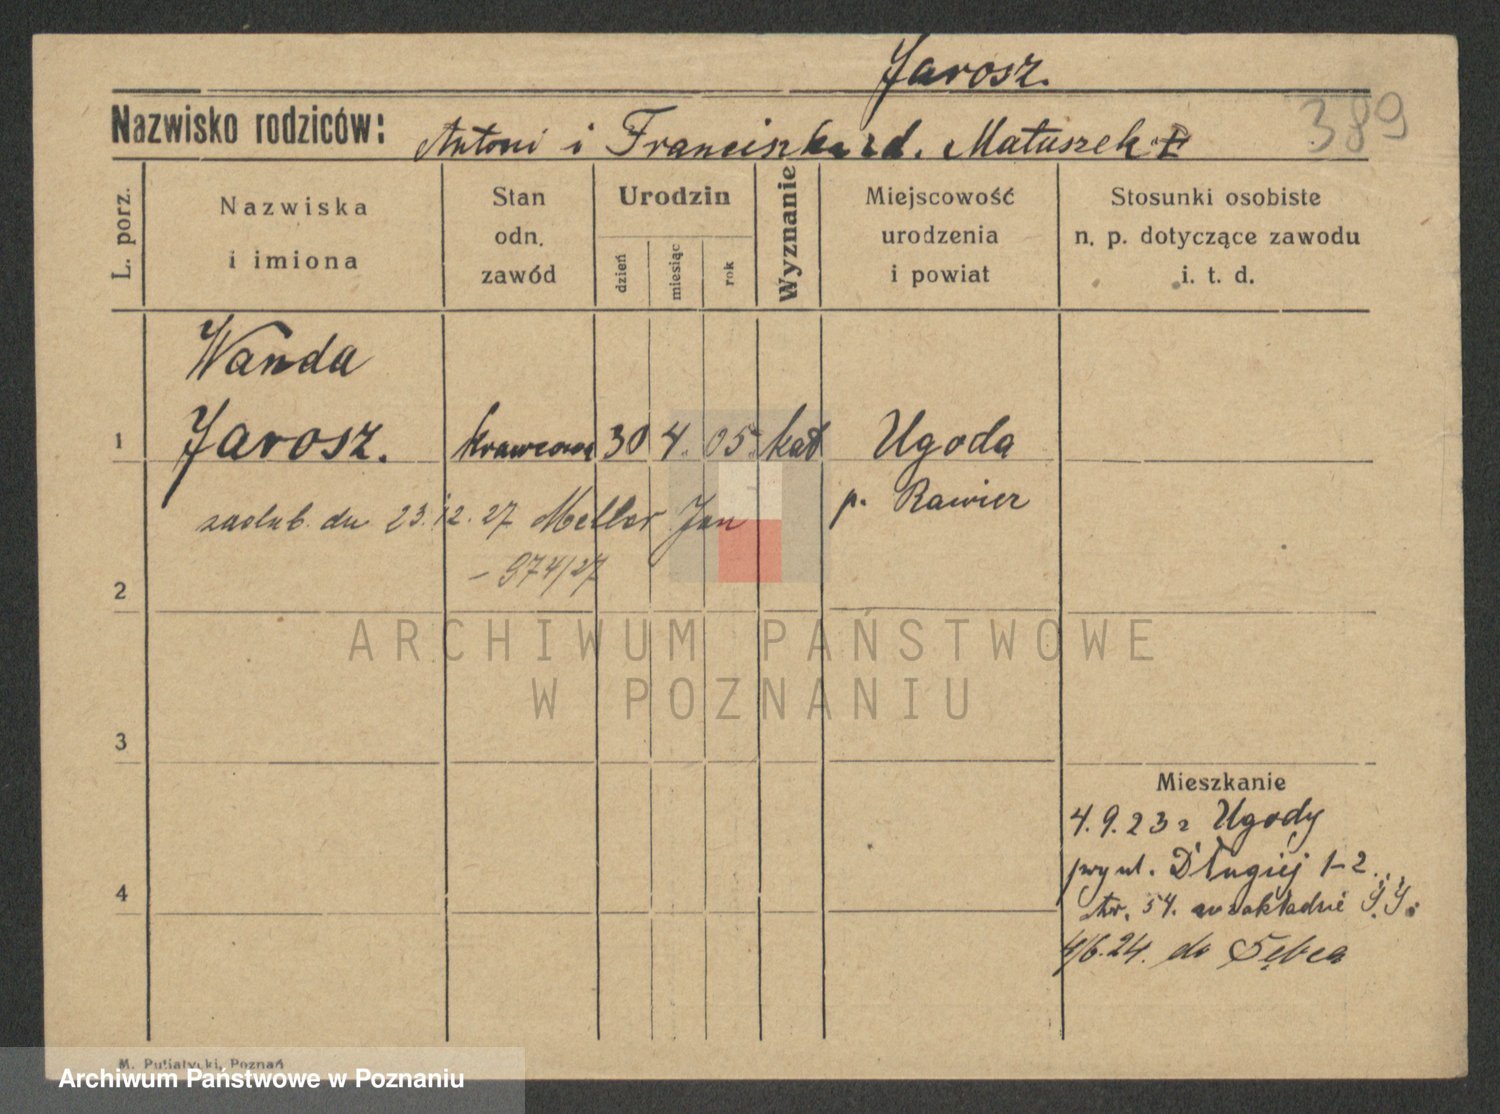 Jarosz.
389
Nazwisko rodziców: Antoni i Franciszka zd. Matuszek
L. porz.
Nazwiska
i imiona
Stan
odn.
zawód
Urodzin
dzień
miesiąc
rok
Wyznanie
Miejscowość
urodzenia
i powiat
Stosunki osobiste
n. p. dotyczące zawodu
i. t. d.
Wanda
1 Jarosz. krawcowa 30 4. 05. kat Ugoda
zaślub. dn 23.12.27 Meller Jan p. Rawicz
- 974/27
2
ARCHIWUM PAŃSTWOWE
W POZNANIU
3
Mieszkanie
4.9.23 z Ugody
przy ul. Długiej 1-2.
4
54. w zakładzie
4/6.24. do
M. Putiatycki, Poznań
Archiwum Państwowe w Poznaniu